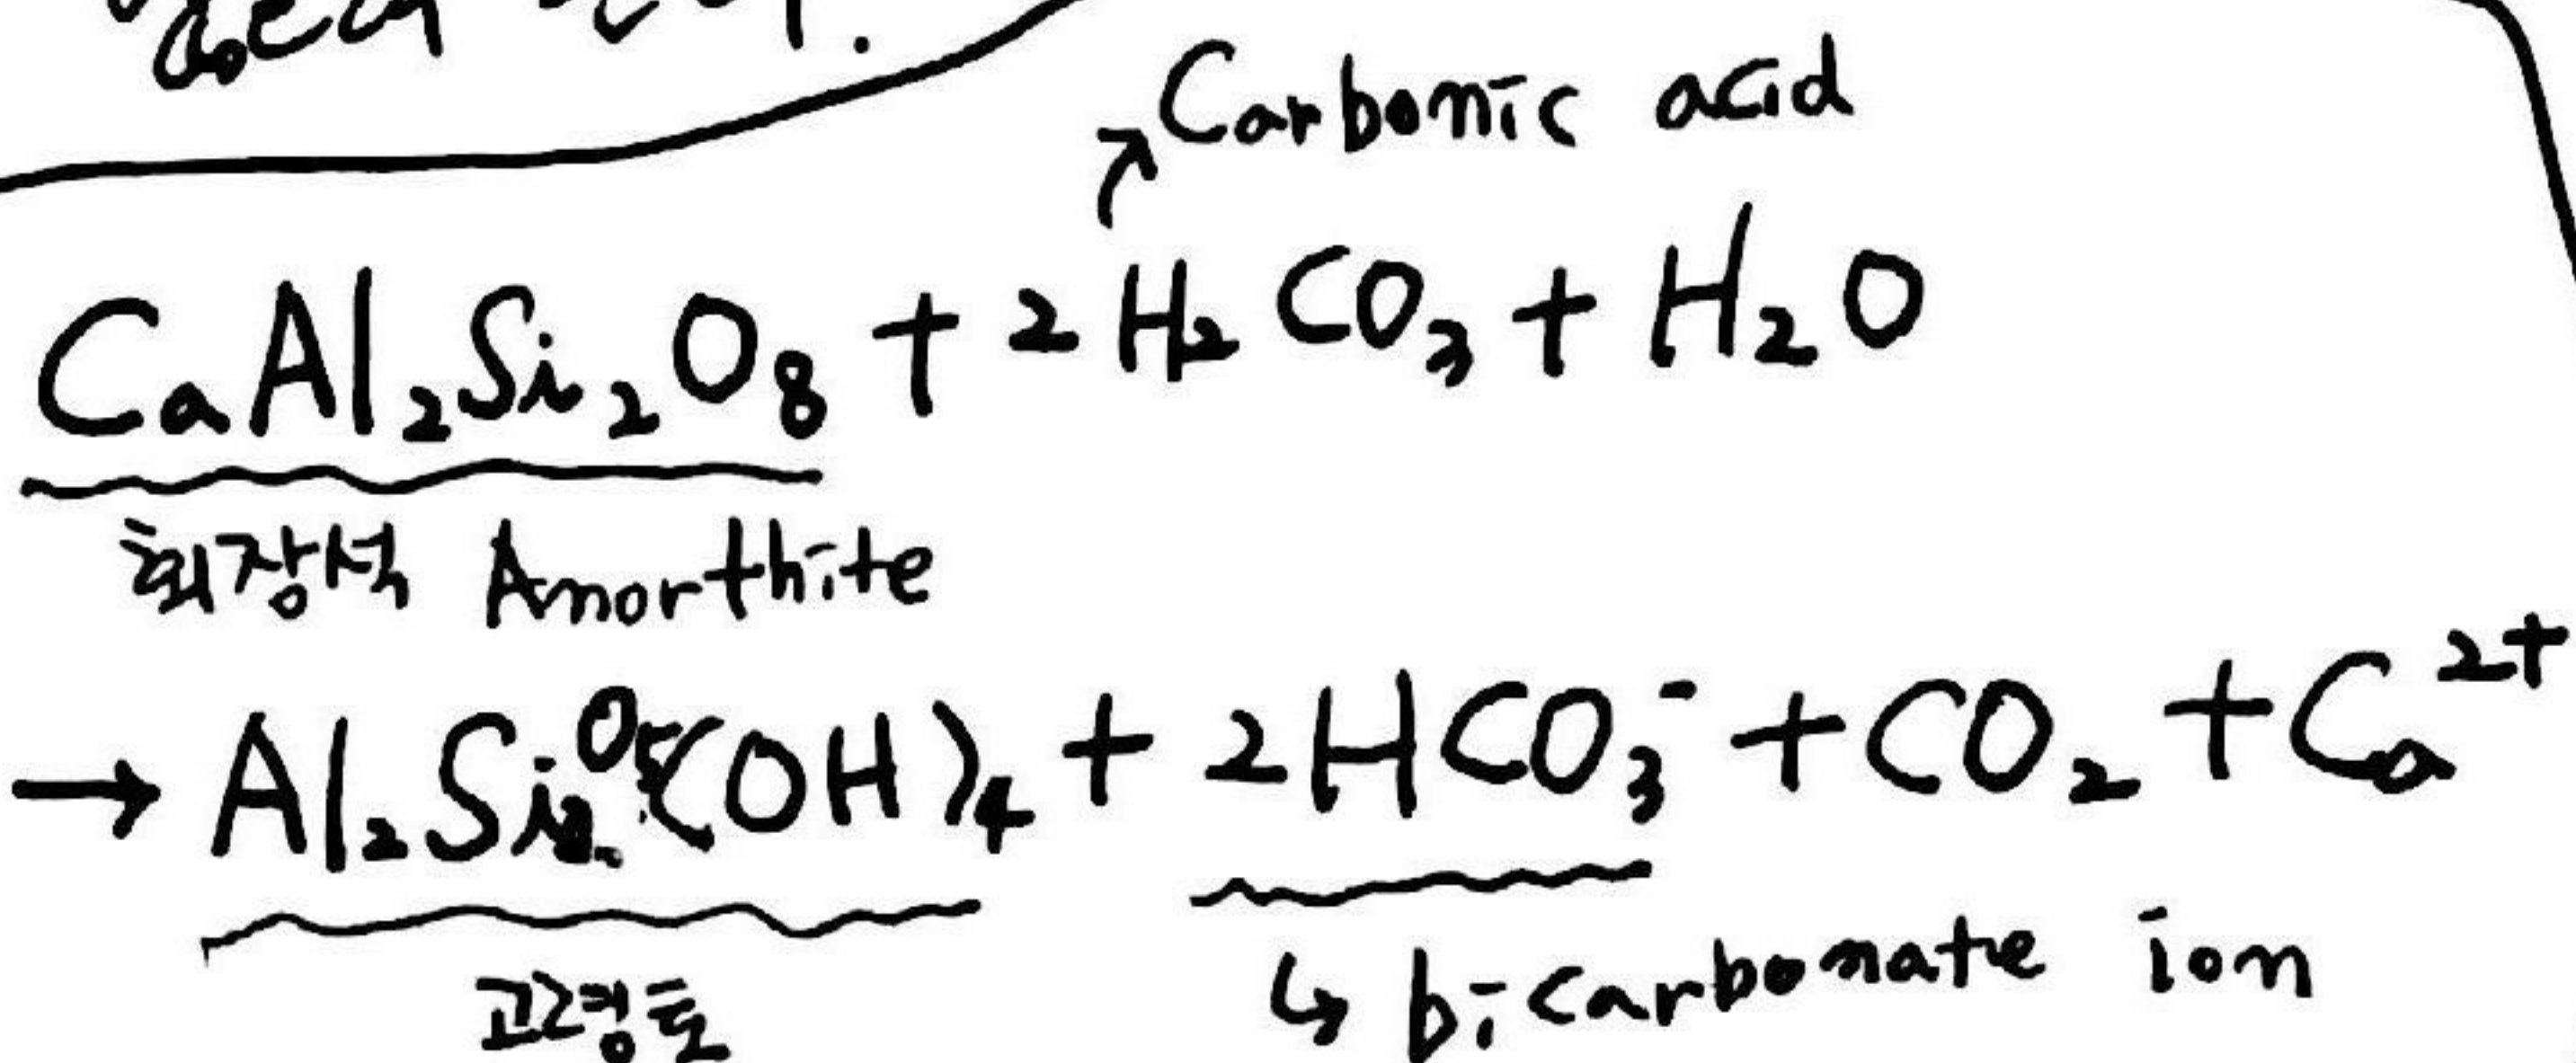 Carbonic acid
CaAl₂Si₂O₈ + 2H₂CO₃ + H₂O
회장석 Anorthite
→ Al₂Si₂O₅(OH)₄ + 2HCO₃⁻ + CO₂ + Ca²⁺
고령토
↳ bicarbonate ion